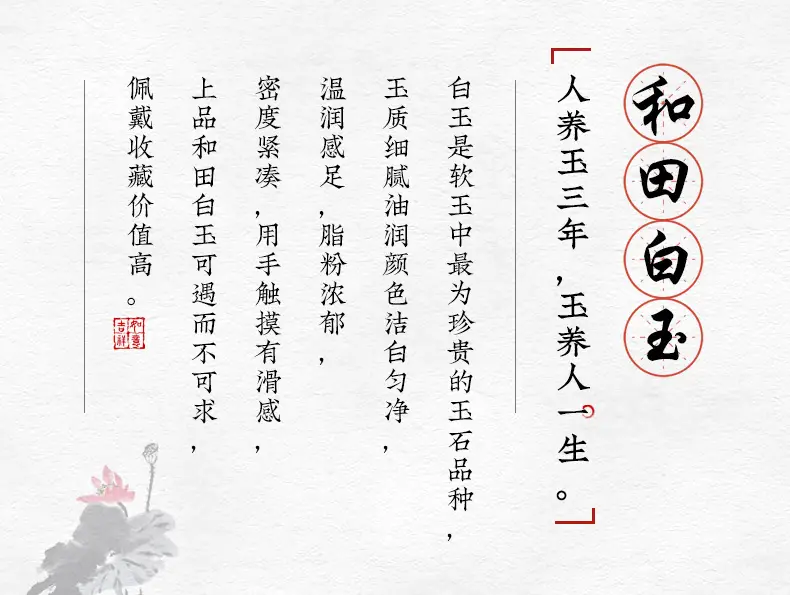 和田白玉
人养玉三年,玉养人一生。
白玉是软玉中最为珍贵的玉石品种,
玉质细腻油润颜色洁白匀净,
温润感足,脂粉浓郁,
密度紧凑,用手触摸有滑感,
上品和田白玉可遇而不可求,
佩戴收藏价值高。
如意
吉祥